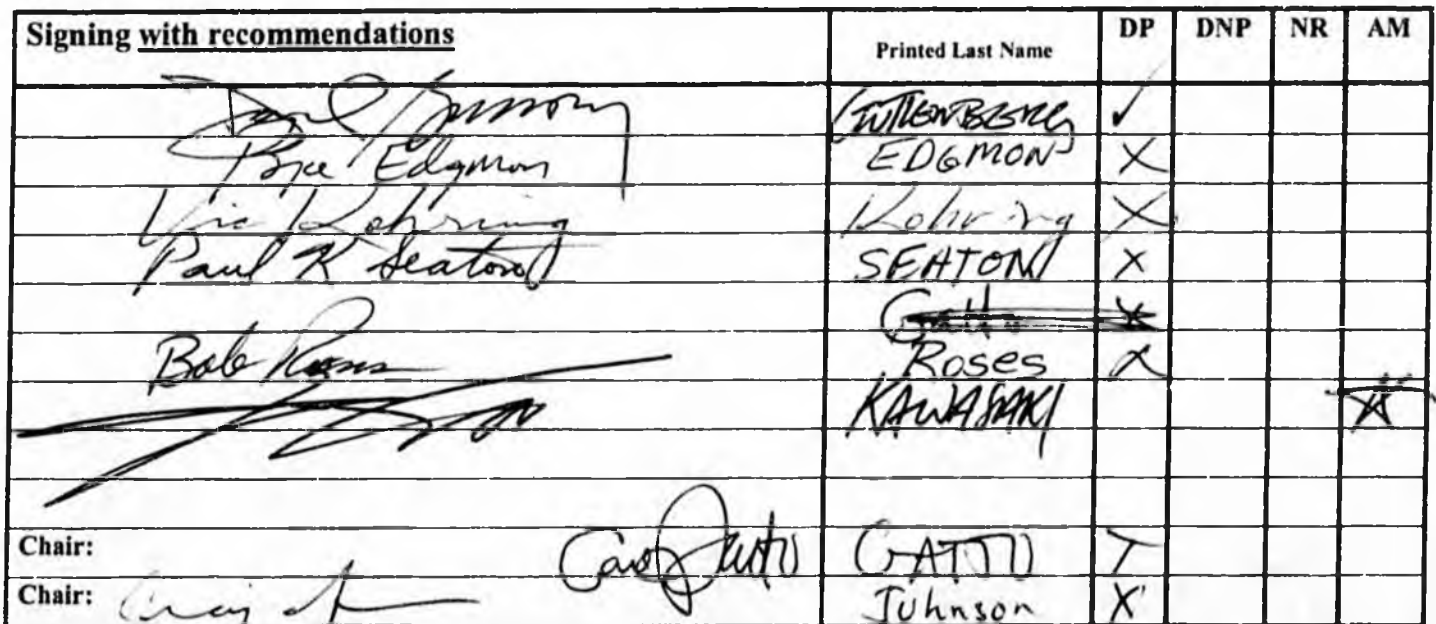 Signing with recommendations Printed Last Name DP DNP NR AM
GUTTENBERG ✓
Bryce Edgmon EDGMON X
Vic Kohring Kohring X
Paul K Seaton SEATON X
Gatto X
Bob Roses Roses X
KAWASAKI X
Chair: Carl Gatto GATTO X
Chair: Craig Johnson X